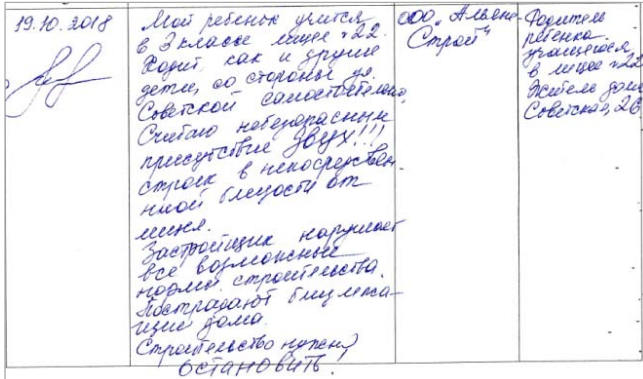 19.10.2018
Мой ребенок учится
в 3 классе лицея №22.
Ходит, как и другие
дети, со стороны ул.
Советской самостоятельно,
Считаю небезопасным
присутствие ДВУХ!!!
строек в непосредствен
нной близости от
лицея.
Застройщик нарушает
все возможные
нормы строительства.
Пострадают близлежа-
щие дома.
Строительство нужно
ОСТАНОВИТЬ.
ООО "Альянс
Строй"
Родитель
ребенка
учащегося
в лицее №22
Житель дома
Советская, 26